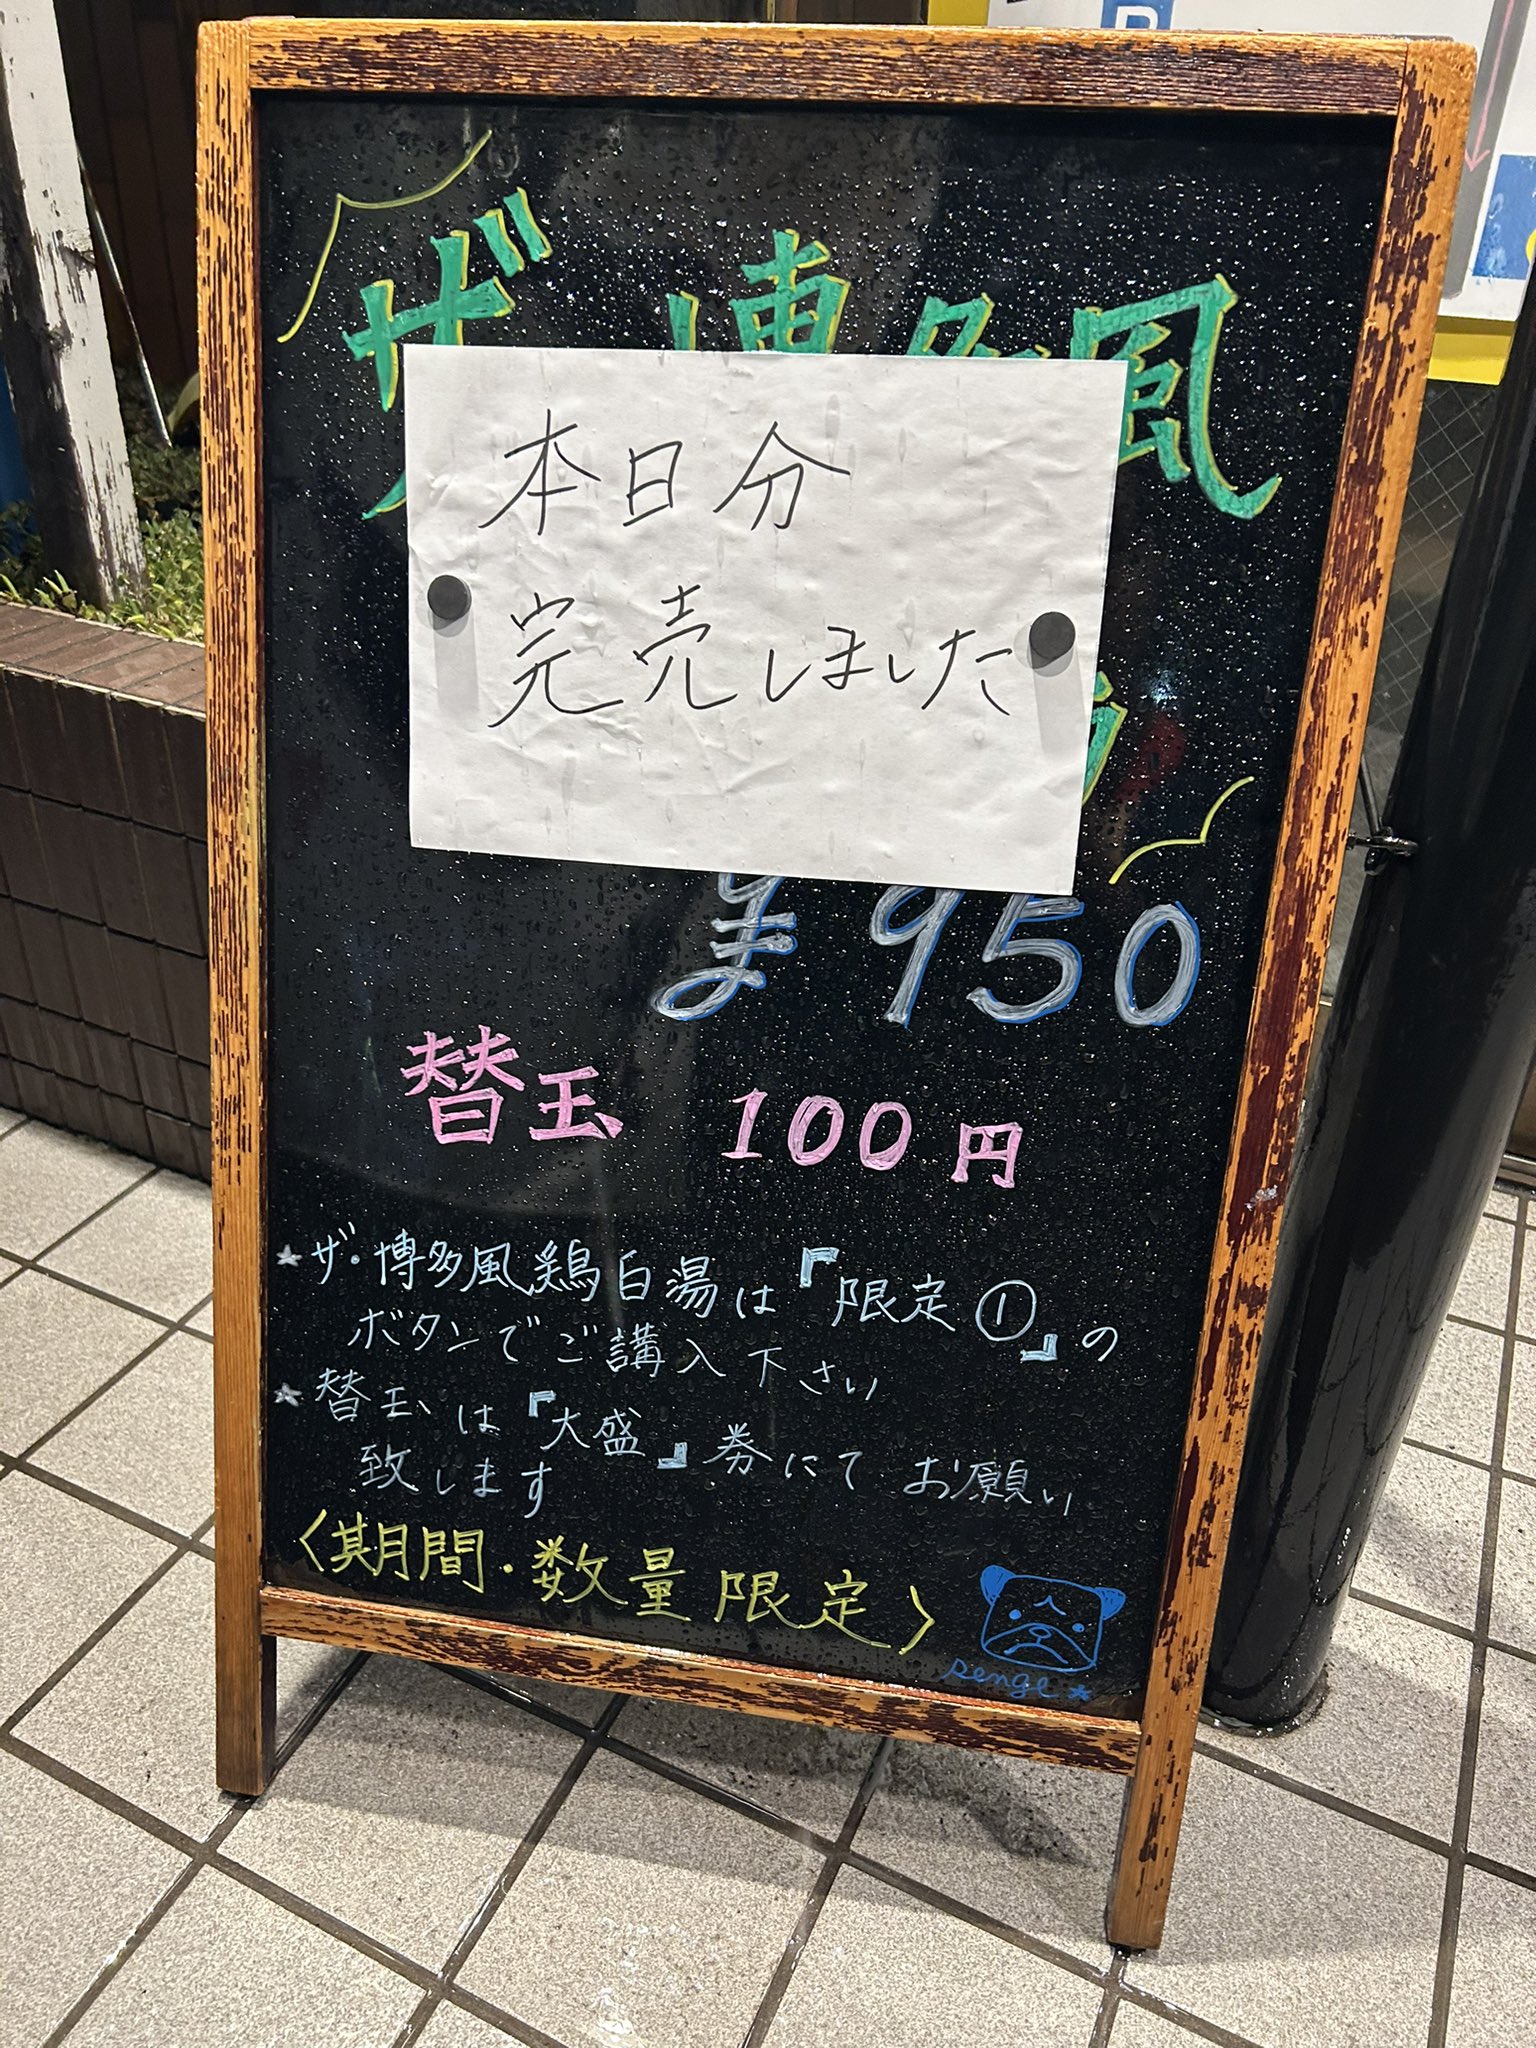 ザ 博多風
本日分
完売しました
¥950
替玉 100円
★ザ・博多風鶏白湯は『限定①』の
ボタンでご講入下さい
★替玉は『大盛』券にてお願い
致します
〈期間・数量限定〉